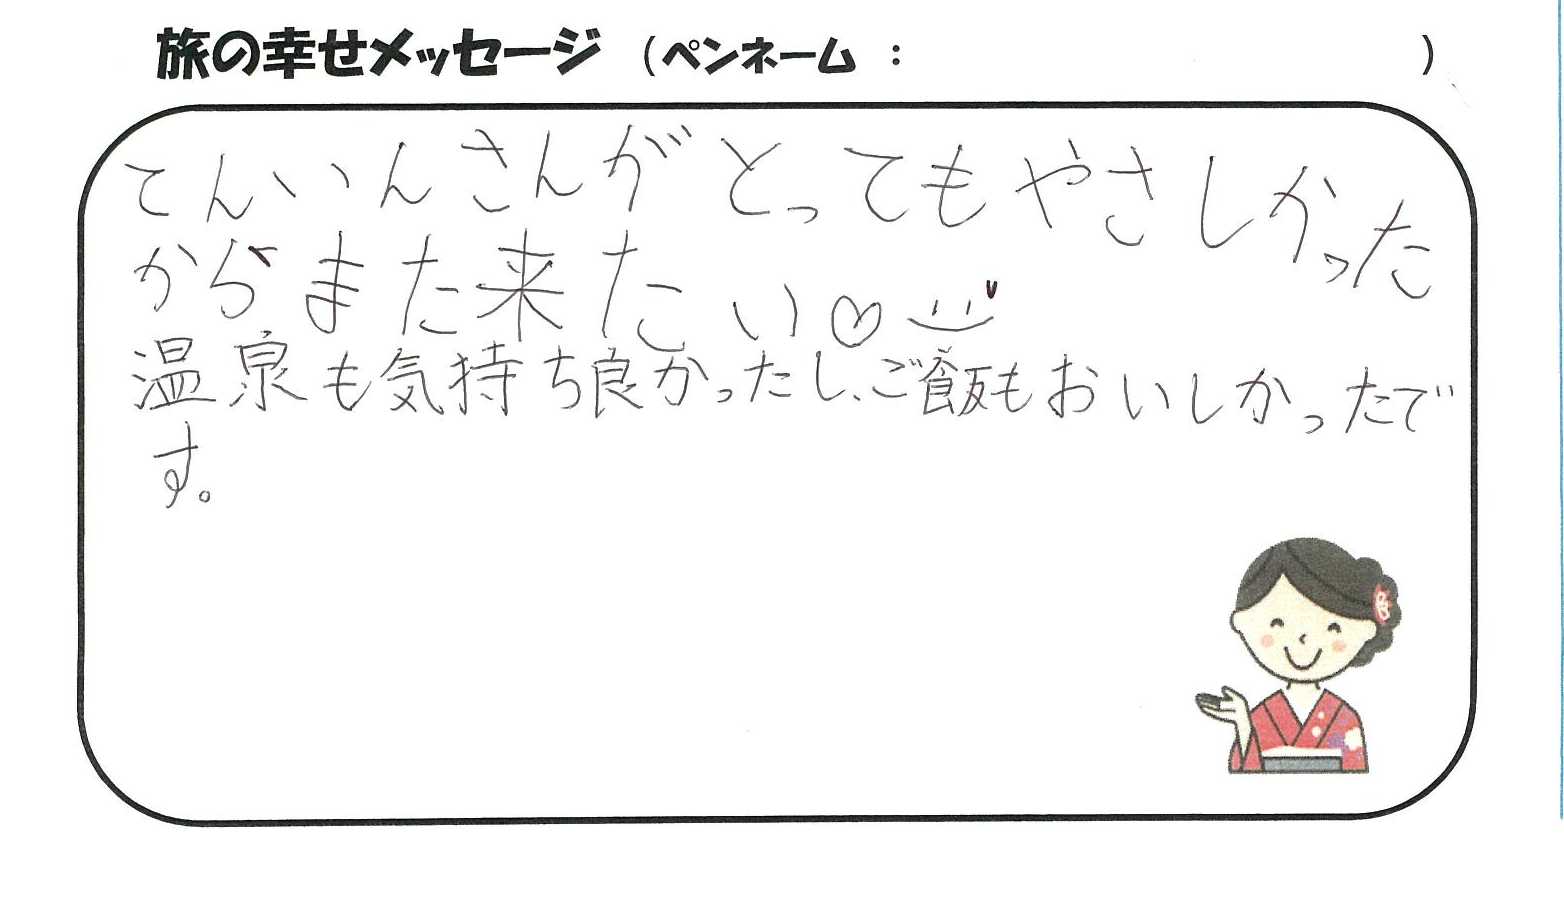 旅の幸せメッセージ (ペンネーム : )
てんいんさんがとってもやさしかった
からまた来たい♡
温泉も気持ち良かったし、ご飯もおいしかったで
す。